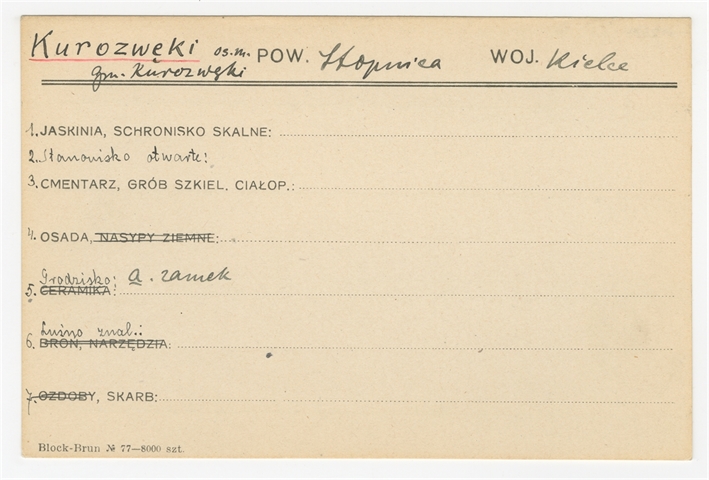 Kurozwęki os.m. POW. Stopnica WOJ. Kielce
gm. Kurozwęki
1. JASKINIA, SCHRONISKO SKALNE:
2. Stanowisko otwarte:
3. CMENTARZ, GRÓB SZKIEL. CIAŁOP.:
4. OSADA, NASYPY ZIEMNE:
Grodzisko: a. zamek
5. CERAMIKA:
Luźno znal.:
6. BROŃ, NARZĘDZIA:
7. OZDOBY, SKARB:
Block-Brun № 77—8000 szt.